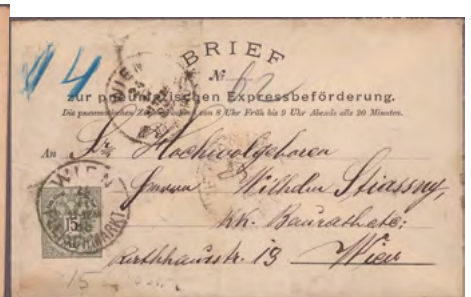 14
BRIEF
№ 62
zur pneumatischen Expressbeförderung.
Die pneumatischen Züge von 8 Uhr Früh bis 9 Uhr Abends alle 20 Minuten.
An Sr Hochwolgeboren
Herrn Wilhelm Stiassny,
kk. Baurathete:
Rathhausstr. 13 Wien
WIEN
FLEISCHMARKT
15
15